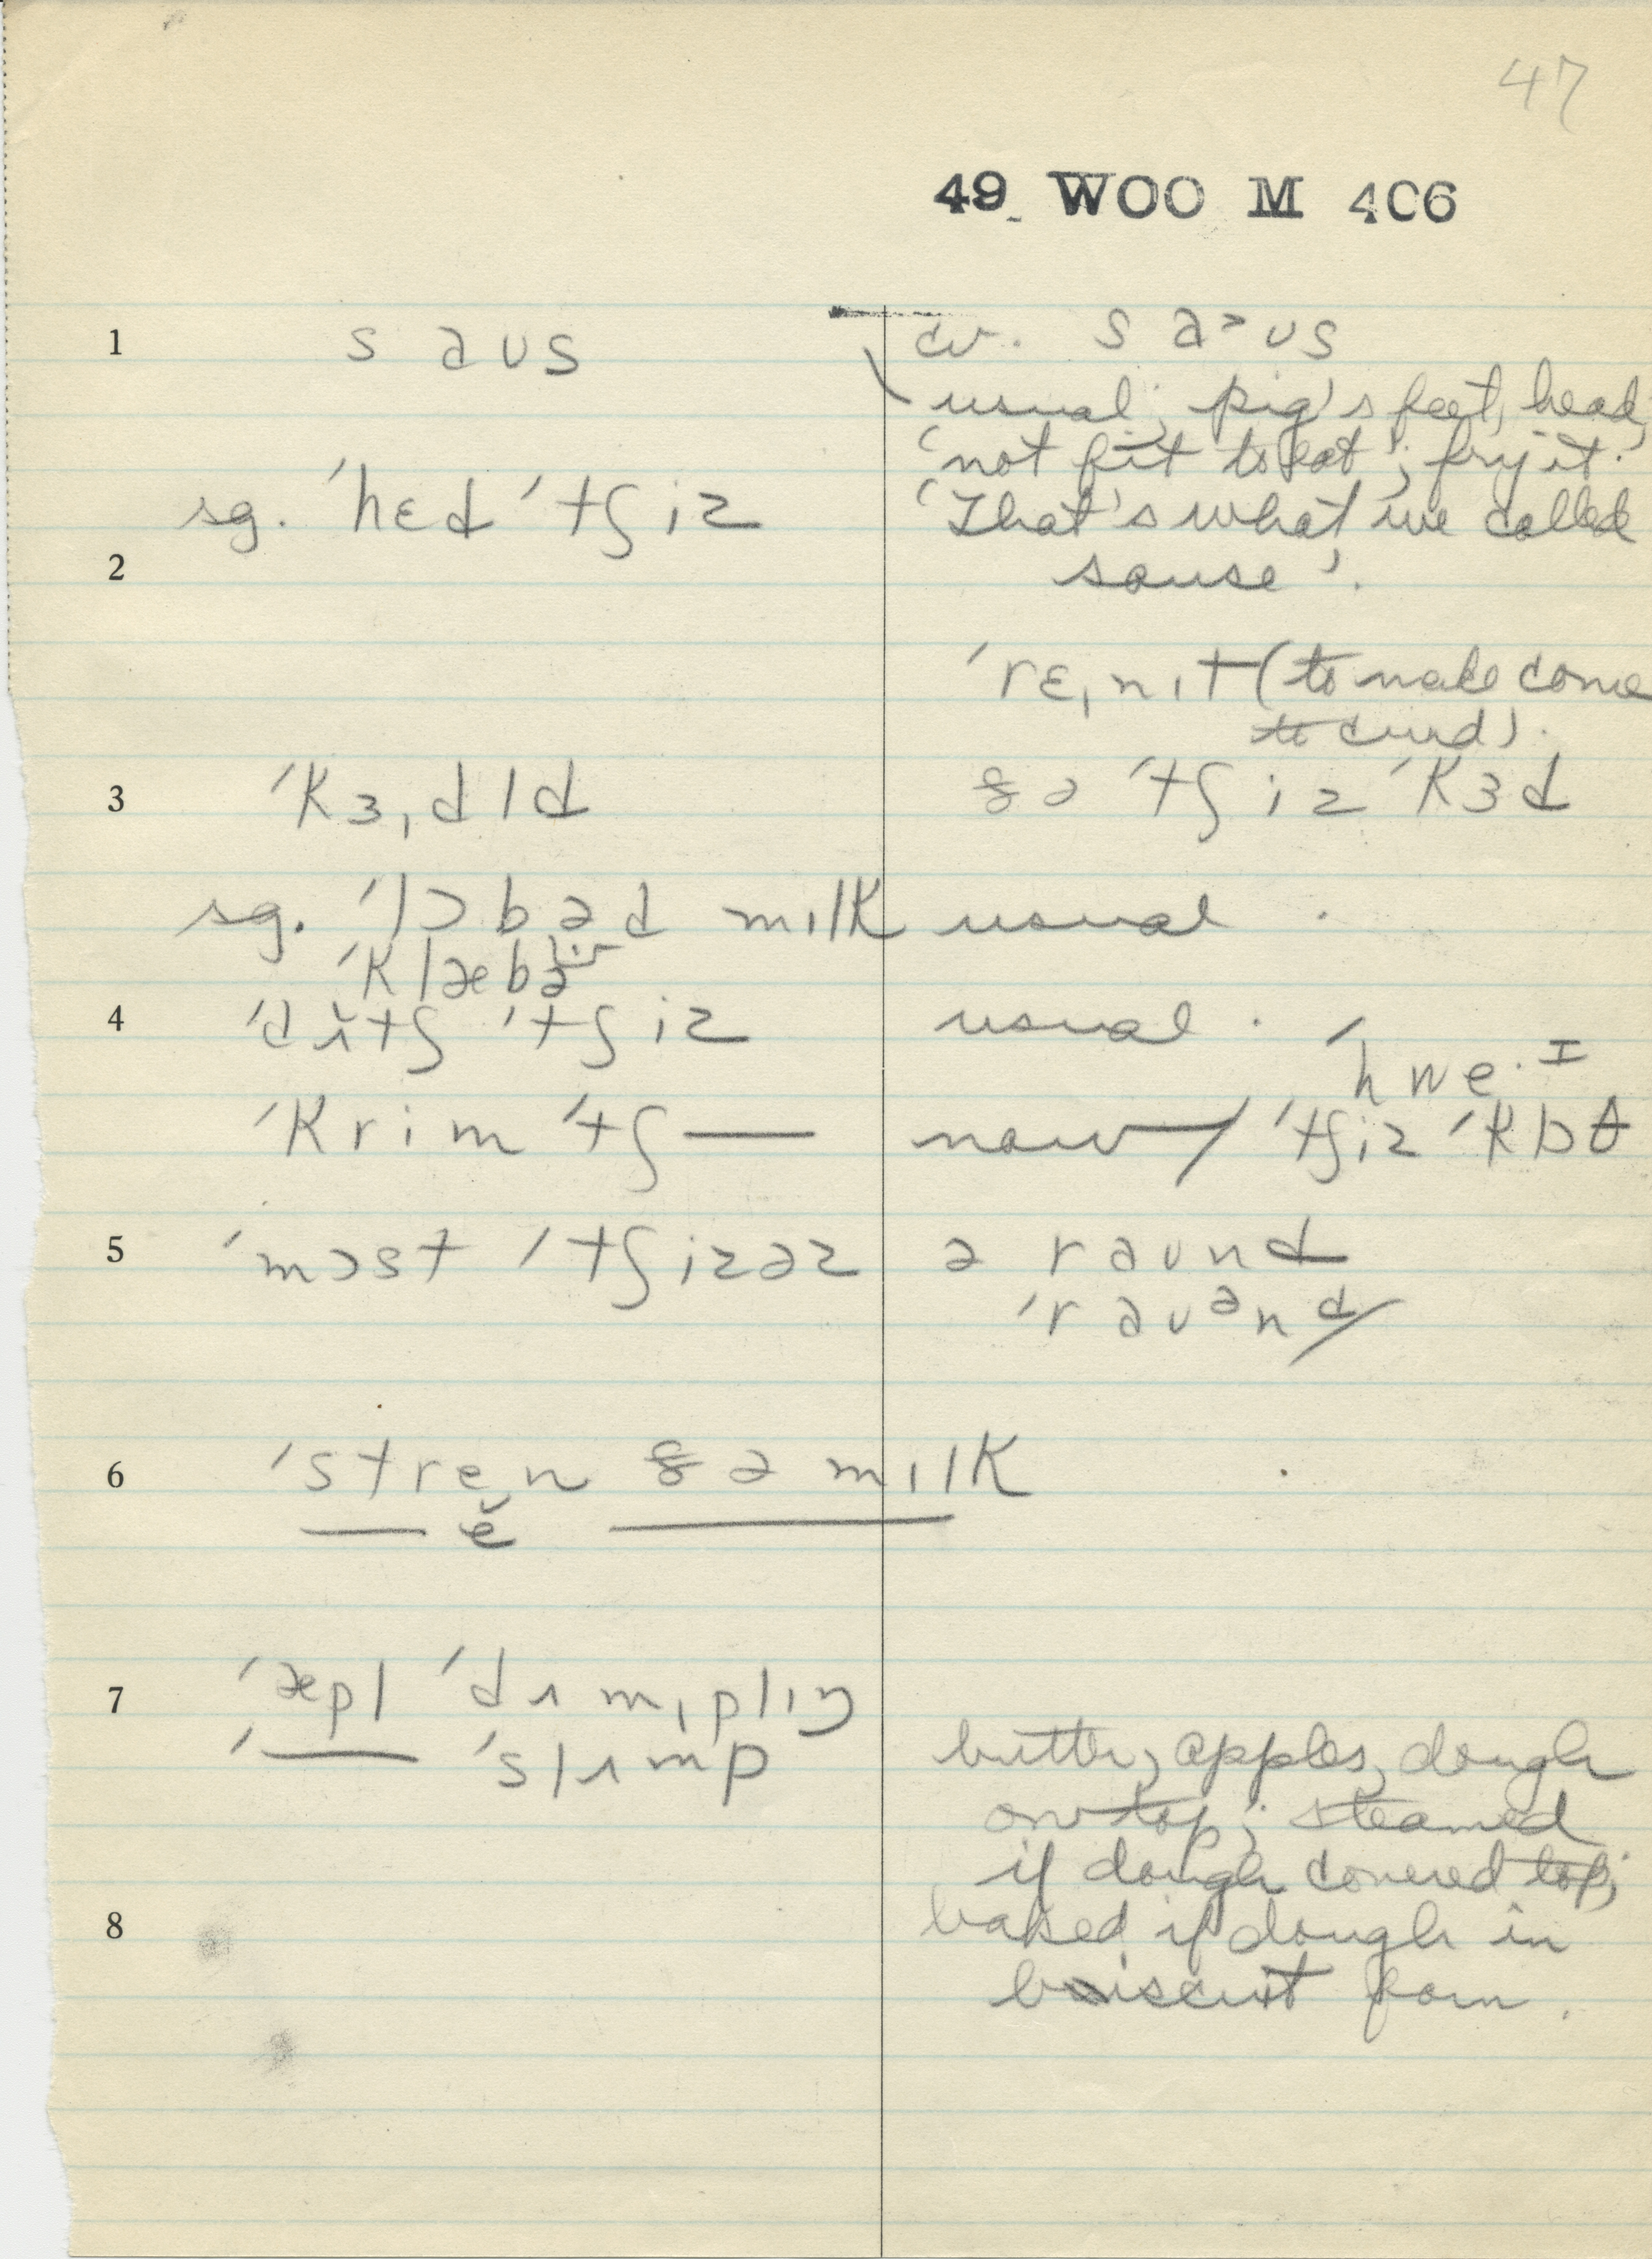 47
49 WOO M 406
1 saus cv. sa˃us
usual; pig's feet, head,
'not fit to eat'; fry it.
sg. ˈhɛd ˈtʃiz 'That's what we called
2 souse'.
ˈrɛˌnɪt (to make come
to curd).
3 ˈkɜˌdld ðə ˈtʃiz ˈkɜd
sg. ˈlɔbəd mɪlk usual.
ˈklæbə
4 ˈdʌtʃ ˈtʃiz usual. ˈhwe·ɪ
ˈkrim ˈtʃ— now/ ˈtʃiz ˈkɒθ
5 ˈmɔst ˈtʃizəz ə raund
ˈrauᵊnd/
6 ˈstren ðə mɪlk
— ĕ —
7 ˈæpl ˈdʌmˌplɪŋ
ˈ— ˈslʌmp butter, apples, dough
on top; steamed
if dough covered top;
8 baked if dough in
biscuit form.